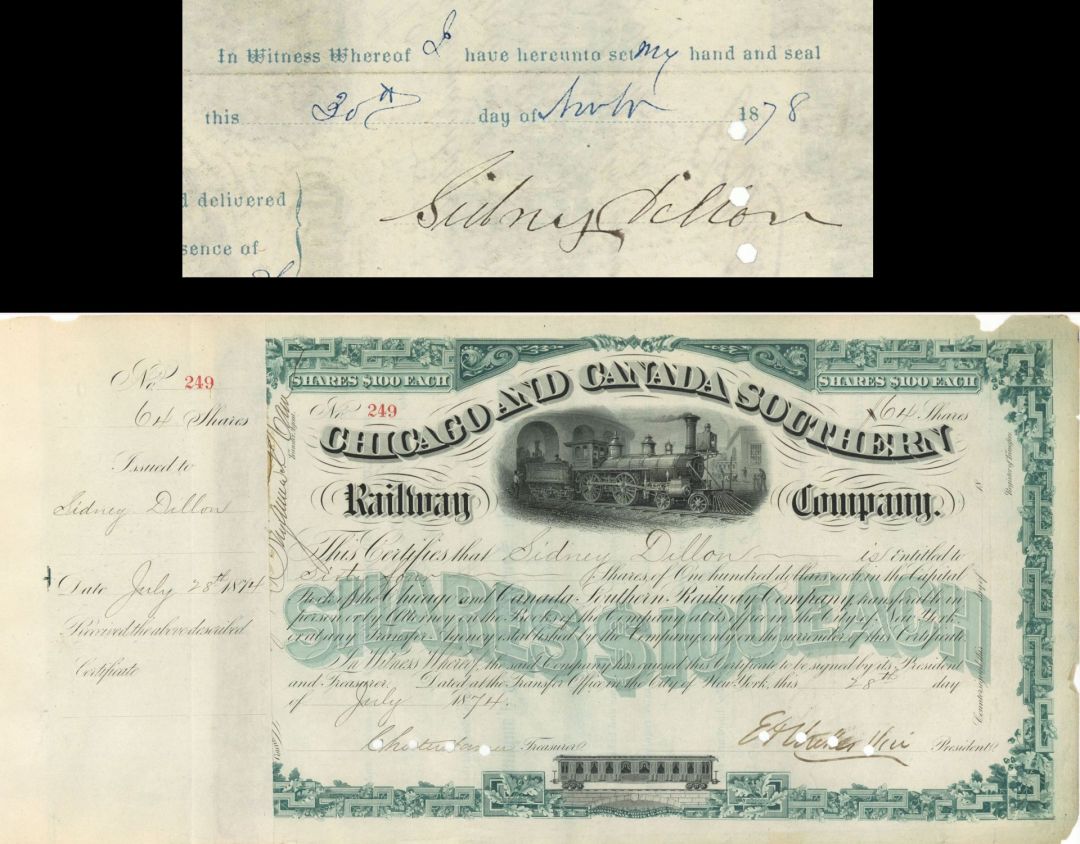 In Witness Whereof I have hereunto set my hand and seal
this 30th day of 1878
d delivered
sence of
Sidney Dillon
No 249
64 Shares
Issued to
Sidney Dillon
Date July 28th 1874
Received the above described
Certificate
SHARES $100 EACH
SHARES $100 EACH
No 249
64 Shares
CHICAGO AND CANADA SOUTHERN
Railway Company.
This Certifies that Sidney Dillon is Entitled to
Sixty four Shares of One hundred dollars each in the Capital
Stock of the Chicago and Canada Southern Railway Company, transferable in
person or by Attorney on the Books of the Company at its Office in the City of New York
or at any Transfer Agency established by the Company only on the surrender of this Certificate
SHARES $100. EACH
In Witness Whereof, the said Company has caused this Certificate to be signed by its President
and Treasurer. Dated at the Transfer Office in the City of New York, this 28th day
of July 1874.
Treasurer
President
Transfer Agent.
Register of Transfers
18